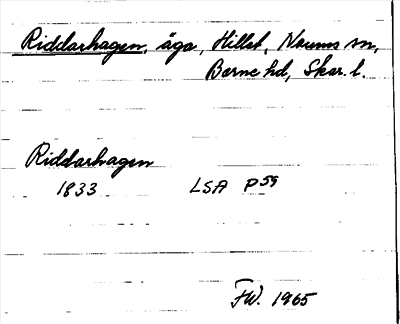 Riddarhagen, äga, Hillet, Naums sn,
Barne hd, Skar. l.
Riddarhagen
1833 LSA P59
FW. 1965